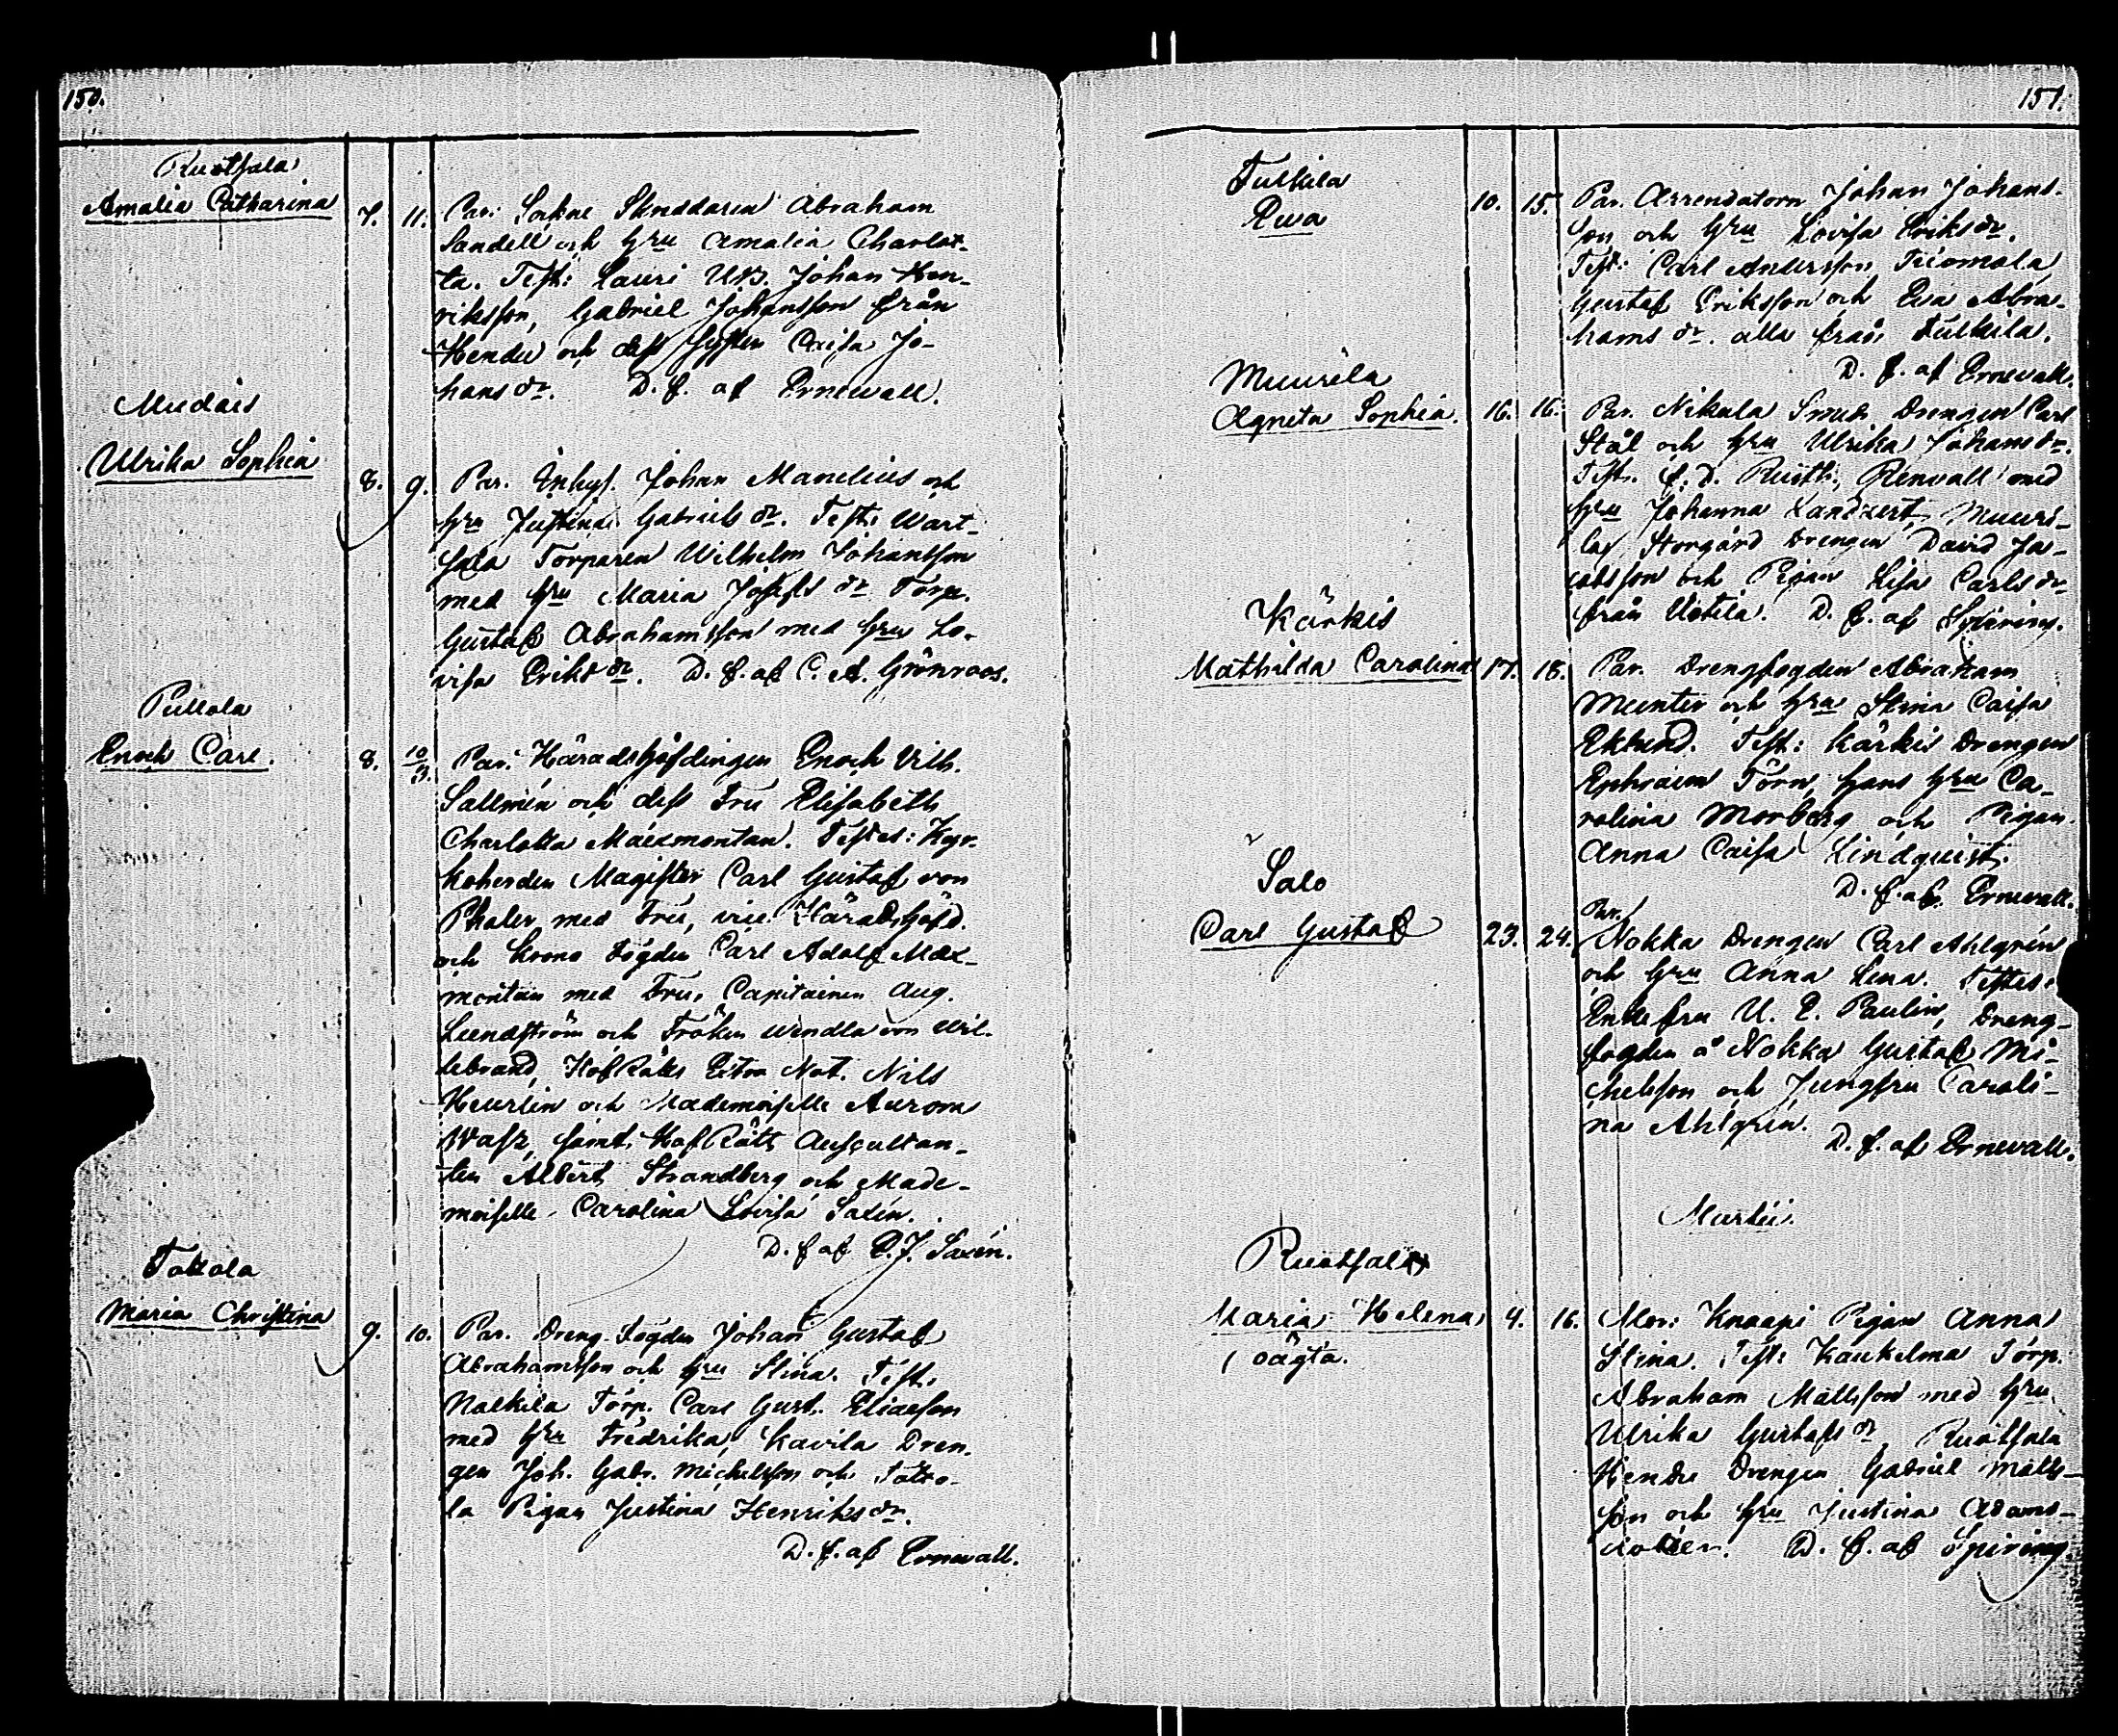 150.
Ruotsala
Amalia Catharina 7. 11. Par: Sockne Skräddaren Abraham
Sandell och hru Amalia Charlot-
ta. Test: Lauri Uts. Johan Hen-
riksson, Gabriel Johansson från
Hendu och dess Syster Caisa Jo-
hans dr. D. f. af Ernewall.
Mudais
Ulrika Sophia 8. 9. Par. Inhys. Johan Manelius och
hru Justina Gabriels dr. Test: Wart-
sala Torparen Wilhelm Johansson
med hru Maria Josephs dr Torp.
Gustaf Abrahamsson med hru Lo-
visa Eriks dr. D. f. af C. A. Grönroos.
Pullola
Enoch Carl. 8. 10/3. Par: Häradshöfdingen Enoch Vilh.
Sallmén och dess Fru Elisabeth
Charlotta Maexmontan. Testes: Kyr-
koherden Magister Carl Gustaf von
Pfaler med Fru, vice Häradshöfd.
och Krono Fogden Carl Adolf Maex-
montan med Fru, Capitainen Aug.
Lundström och Fröken Wendla von Wil-
lebrand, Hof Rätts Extra Not. Nils
Heurlin och Mademoiselle Aurora
Wass, samt Hof Rätts Auscultan-
ten Albert Strandberg och Made-
moiselle Carolina Lovisa Saxén.
D. f. af E. J. Saxén.
Tattola
Maria Christina 9. 10. Par. Dreng Fogden Johan Gustaf
Abrahamsson och hru Stina. Test.
Nalkila Torp. Carl Gust. Eliasson
med hru Fredrika, Kavila Dren-
gen Joh. Gabr. Michelsson och Tatto-
la Pigan Justina Henriks dr.
D. f. af Ernewall.
151.
Tulkila
Eva 10. 15. Par. Arrendatorn Johan Johans-
son och hru Lovisa Eriks dr.
Test: Carl Andersson Tuomola,
Gustaf Eriksson och Eva Abra-
hams dr. alla från Tulkila.
D. f. af Ernevall.
Muurila
Agneta Sophia. 16. 16. Par. Nikula Smeds Drengen Carl
Stål och hru Ulrika Johans dr.
Test. f. d. Rusth. Renvall med
hru Johanna Landzert, Muuri-
la Storgård Drengen David Ja-
cobsson och Pigan Lisa Carls dr
från Uotila. D. f. af Spiring.
Kärkis
Mathilda Carolina 17. 18. Par. Drengfogden Abraham
Munter och hru Stina Caisa
Eklund. Test: Kärkis Drengen
Ephraim Törn, hans hru Ca-
rolina Morberg och Pigan
Anna Caisa Lindquist.
D. f. af Ernevall.
Salo
Carl Gustaf 23. 24. Par. Nokka Drengen Carl Ahlgrén
och hru Anna Lena. Testes:
Enkefru U. E. Paulin, Dreng-
fogden å Nokka Gustaf Mi-
chelsson och Jungfru Caroli-
na Ahlgrén.
D. f. af Ernevall.
Martii.
Ruotsala
Maria Helena 4. 16. Mor: Knaapi Pigan Anna
oägta. Stina. Test: Kaukelma Torp.
Abraham Mattsson med hru
Ulrika Gustafs dr Ruotsala
Hendu Drengen Gabriel Matts-
son och hru Justina Adams-
dotter. D. f. af Spiring.